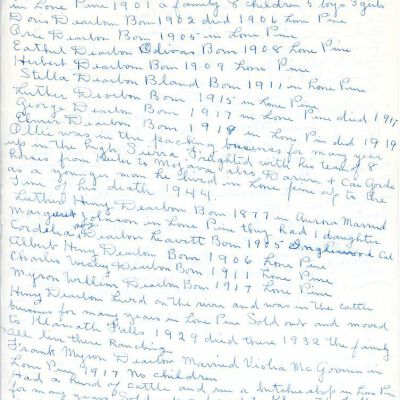 in Lone Pine 1901 a family 8 children 5 boys 3 girls
Doris Dearbon Born 1902 died 1906 Lone Pine
Orie Dearbon Born 1905 in Lone Pine
Eathel Dearbon Olivas Born 1908 Lone Pine
Herbert Dearbon Born 1909 Lone Pine
Stella Dearbon Bland Born 1911 in Lone Pine
Luther Dearbon Born 1915 in Lone Pine
George Dearbon Born 1917 in Lone Pine died 1917
Elmer Dearbon Born 1919 in Lone Pin died 1919
Ollie was in the packing busenes for many year
up in the high Sierra Freighted with his team of 8
horses from Keeler to also Darwin & Cao Gordo
as a younger man he lived in Lone pine up to the
Time of his death 1944.
Luther Huny Dearbon Born 1877 in Aurora Married
Margaret Johnson in Lone Pine they had 1 daughter
Cordelia May Dearbon Leavett Born 1905 Cal
Albert Huny Dearbon Born 1906 Lone Pine
Charlie Wesley Dearbon Born 1911 Lone Pine
Myron William Dearbon Born 1917 Lone Pine
Huny Dearbon Lived on the river and was in the cattle
busines for many years in Lone Pine Sold out and moved
to Klamath Falls 1929 died there 1932 the family
all live there Ranching
Frank Myron Dearbon Married Viola McGovern in
Lone Pine 1917 No children
Had a hund of cattle and run a butchershop in Lone Pine
for many years Sold